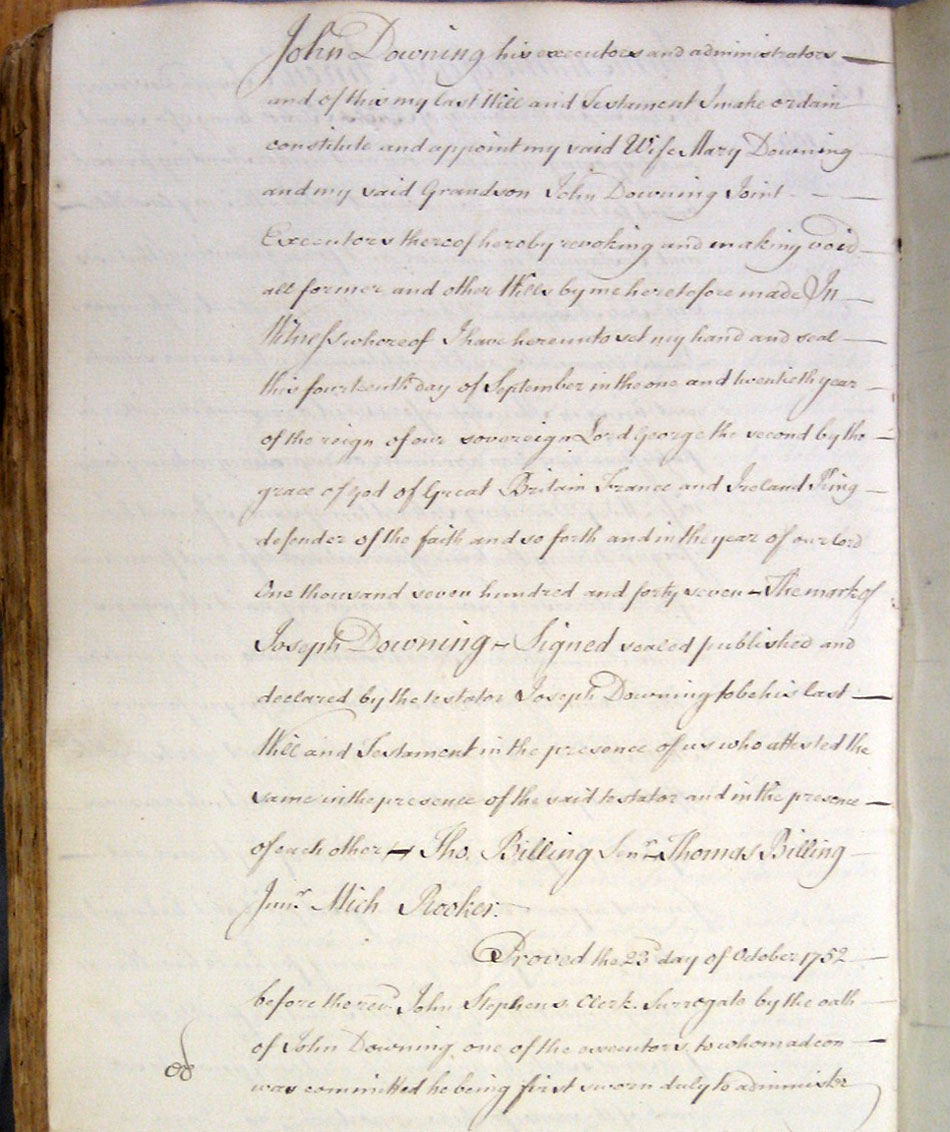 John Downing his executors and administrators
and of this my last Will and Testament I make ordain
constitute and appoint my said Wife Mary Downing
and my said Grandson John Downing Joint
Executors thereof hereby revoking and making void
all former and other Wills by me heretofore made In
Witness whereof I have hereunto set my hand and seal
this fourteenth day of September in the one and twentieth year
of the reign of our sovereign Lord George the second by the
grace of God of Great Britain France and Ireland King
defender of the faith and so forth and in the year of our lord
One thousand seven hundred and forty seven - The mark of
Joseph Downing - Signed sealed published and
declared by the testator Joseph Downing to be his last
Will and Testament in the presence of us who attested the
same in the presence of the said testator and in the presence
of each other - Tho. Billing Senr - Thomas Billing
Junr Mich Rooker.
Proved the 23d day of October 1752
before the revd. John Stephens Clerk Surrogate by the oath
of John Downing one of the executors, to whom adcon
was committed he being first sworn duly to administer